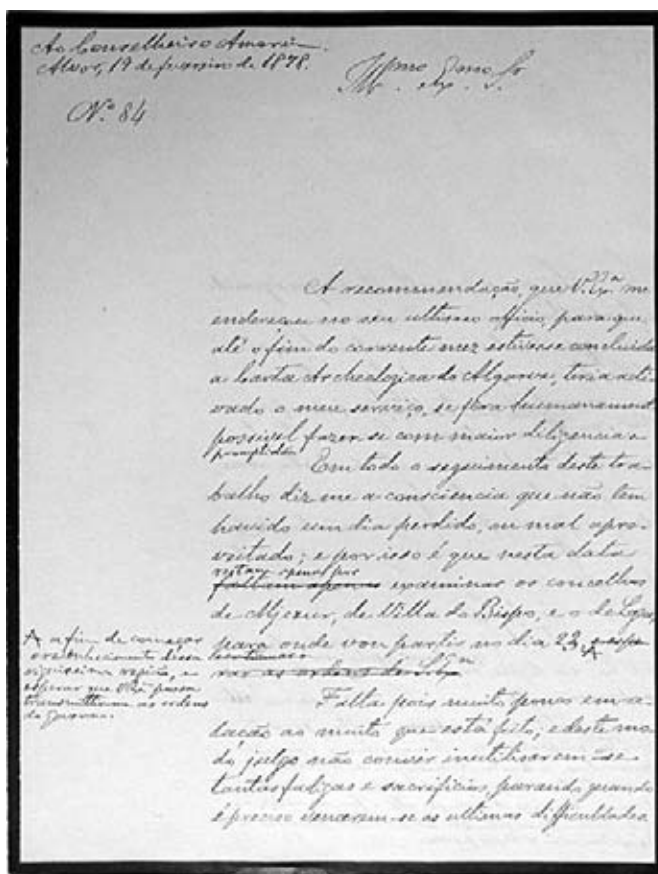 Ao Conselheiro Amorim.
Alvor, 19 de fevereiro de 1878.
Nº 84
Illmo Exmo Sr
A recomendação, que V. Exª me
endereçou no seu ultimo officio, para que,
até o fim do corrente mez estivesse concluida
a Carta Archeologica do Algarve, teria acti-
vado o meu serviço, se fôra humanament
possivel fazer-se com maior diligencia e
promptidão
Em todo o seguimento deste tra-
balho diz-me a consciencia que não tem
havido um dia perdido, ou mal apro-
veitado; e por isso é que nesta data
restam apenas por
faltam apenas examinar os concelhos
de Aljezur, de Villa do Bispo, e o de Lagos,
para onde vou partir no dia 22, e espe
rar as ordens de V. Exª
A a fim de começar
o reconhecimento dessa
região, e
esperar que V. Exª possa
transmittir-me as ordens
do Governo.
Falta pois muito pouco em re-
lação ao muito que está feito; e deste mo-
do julgo não convir inutilisarem-se
tantas fadigas e sacrificios, parando quando
é preciso vencerem-se as ultimas difficuldades.